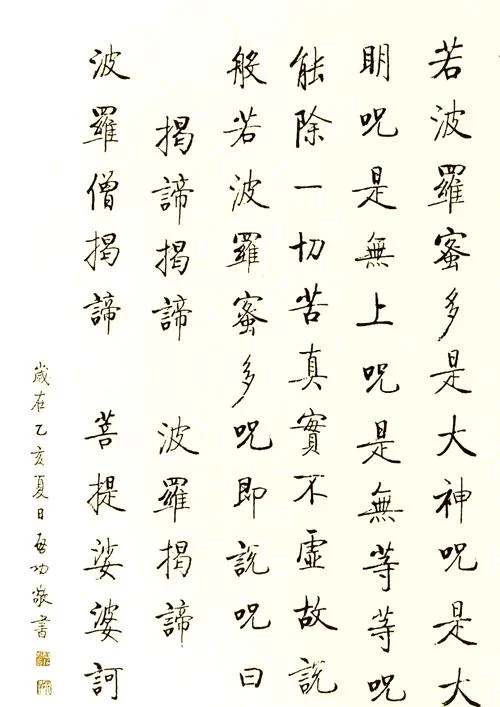 若波羅蜜多是大神呪是大
明呪是無上呪是無等等呪
能除一切苦真實不虛故說
般若波羅蜜多呪即說呪曰
揭諦揭諦 波羅揭諦
波羅僧揭諦 菩提娑婆訶
歲在乙亥夏日啟功敬書